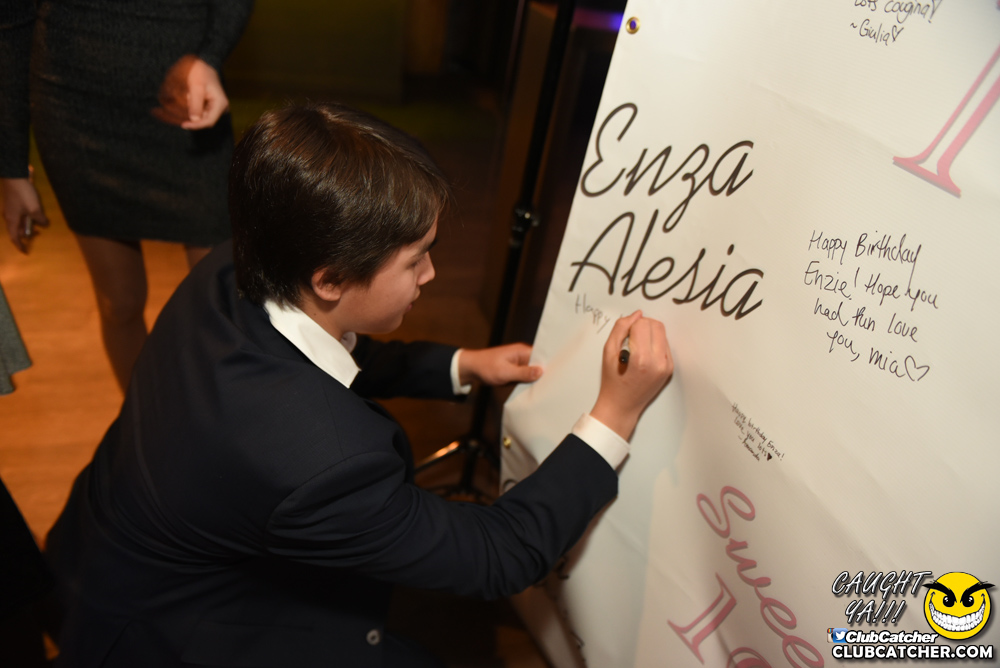 lots cougna!
~Giulia♡
1
Enza
Alesia
Happy
Happy Birthday
Enzie! Hope you
had fun love
you, Mia♡
Happy birthday Enza!
love you lots♥
Sweet
1
CAUGHT
YA!!!
/ClubCatcher
CLUBCATCHER.COM